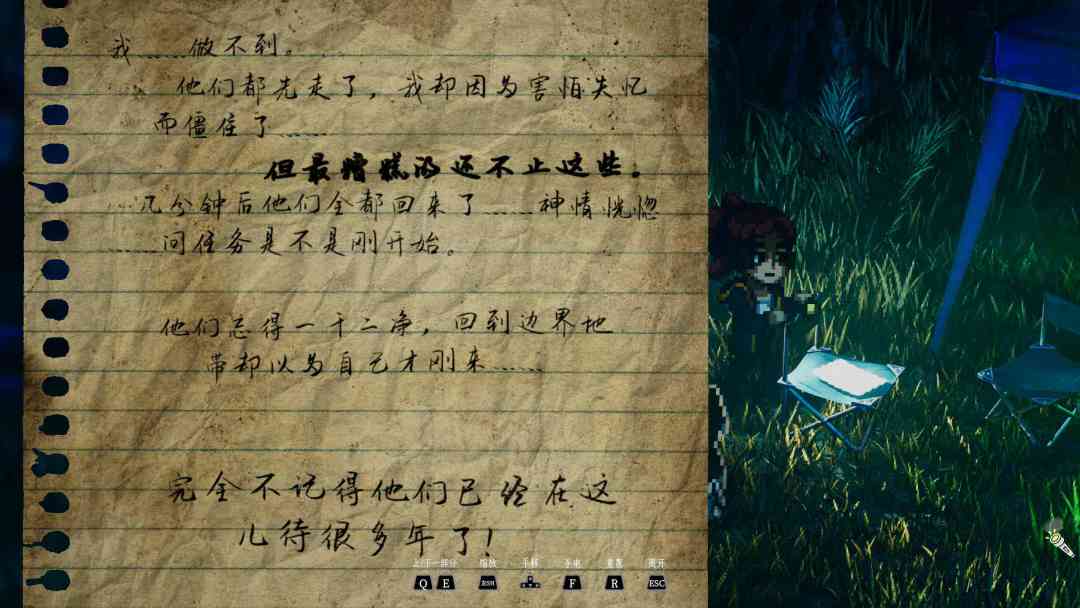 我……做不到。
他们都先走了，我却因为害怕失忆
而僵住了……
但最糟糕的还不止这些。
……几分钟后他们全都回来了……神情恍惚
……问任务是不是刚开始。
他们忘得一干二净，回到边界地
带却以为自己才刚来……
完全不记得他们已经在这
儿待很多年了！
上/下一部分 缩放 平移 手电 重置 离开
Q E F R ESC